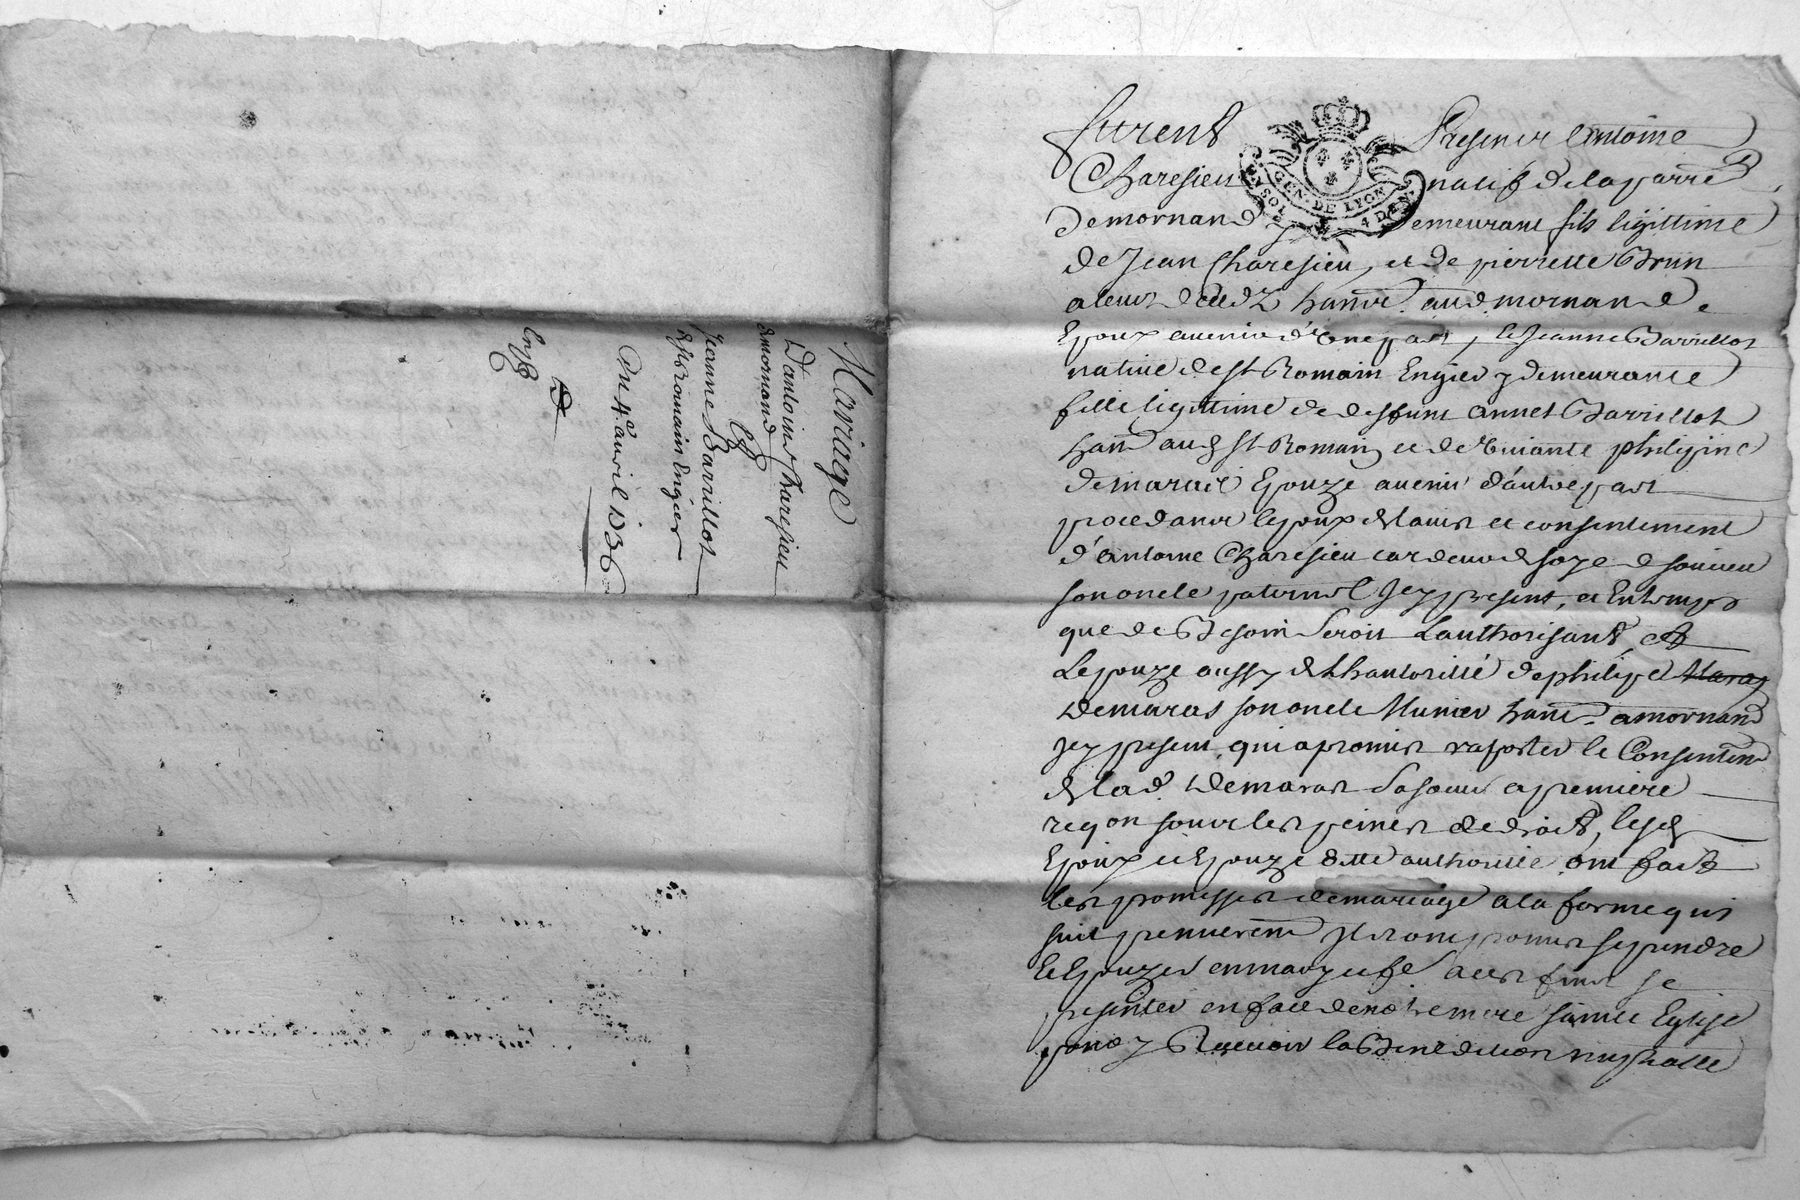 Mariage
D'antoine Charesieu
demornand
Et
Jeanne Barrillot
de st Romain Engier
Du 4e avril 1736
Exp
furent Presens antoine
GEN. DE LYON
4 DEN.
Charesieu natif de la parre
de mornand y demeurant fils ligittime
de Jean Charesieu, et de pierrette Brun
a leur decedz hans aud mornand.
Epoux avenir d'une part, et Jeanne Barrillot
native de st Romain Engier y demeurante
fille ligittime de deffunt annet Barrillot
hant aud st Romain et de vivante philipine
demarais Epouze avenir d'autre part
procedans lepoux de lavis et consentement
d'antoine Charesieu cardeur de soye de soucieu
son oncle paternel Jcy present, et Entemps
que de Besoin seroit Lauthorisant, et
Lepouze aussy de Lhautorité de philipe
Demaras son oncle Munier hant a mornand
Jcy present, qui a promis raporter le Consentem
de lad. Demaras sa soeur a premiere
reqon sous les peines de droit, lesd
Epoux et Epouze dette authorité ont fait
les promesses de mariage a la forme qui
suit premierem Jls ont promis se prendre
et Epouzer en mary et fe a ces fins se
presenter en face de notre mere sainte Eglise
pour y Recevoir la Benediction nuptialle